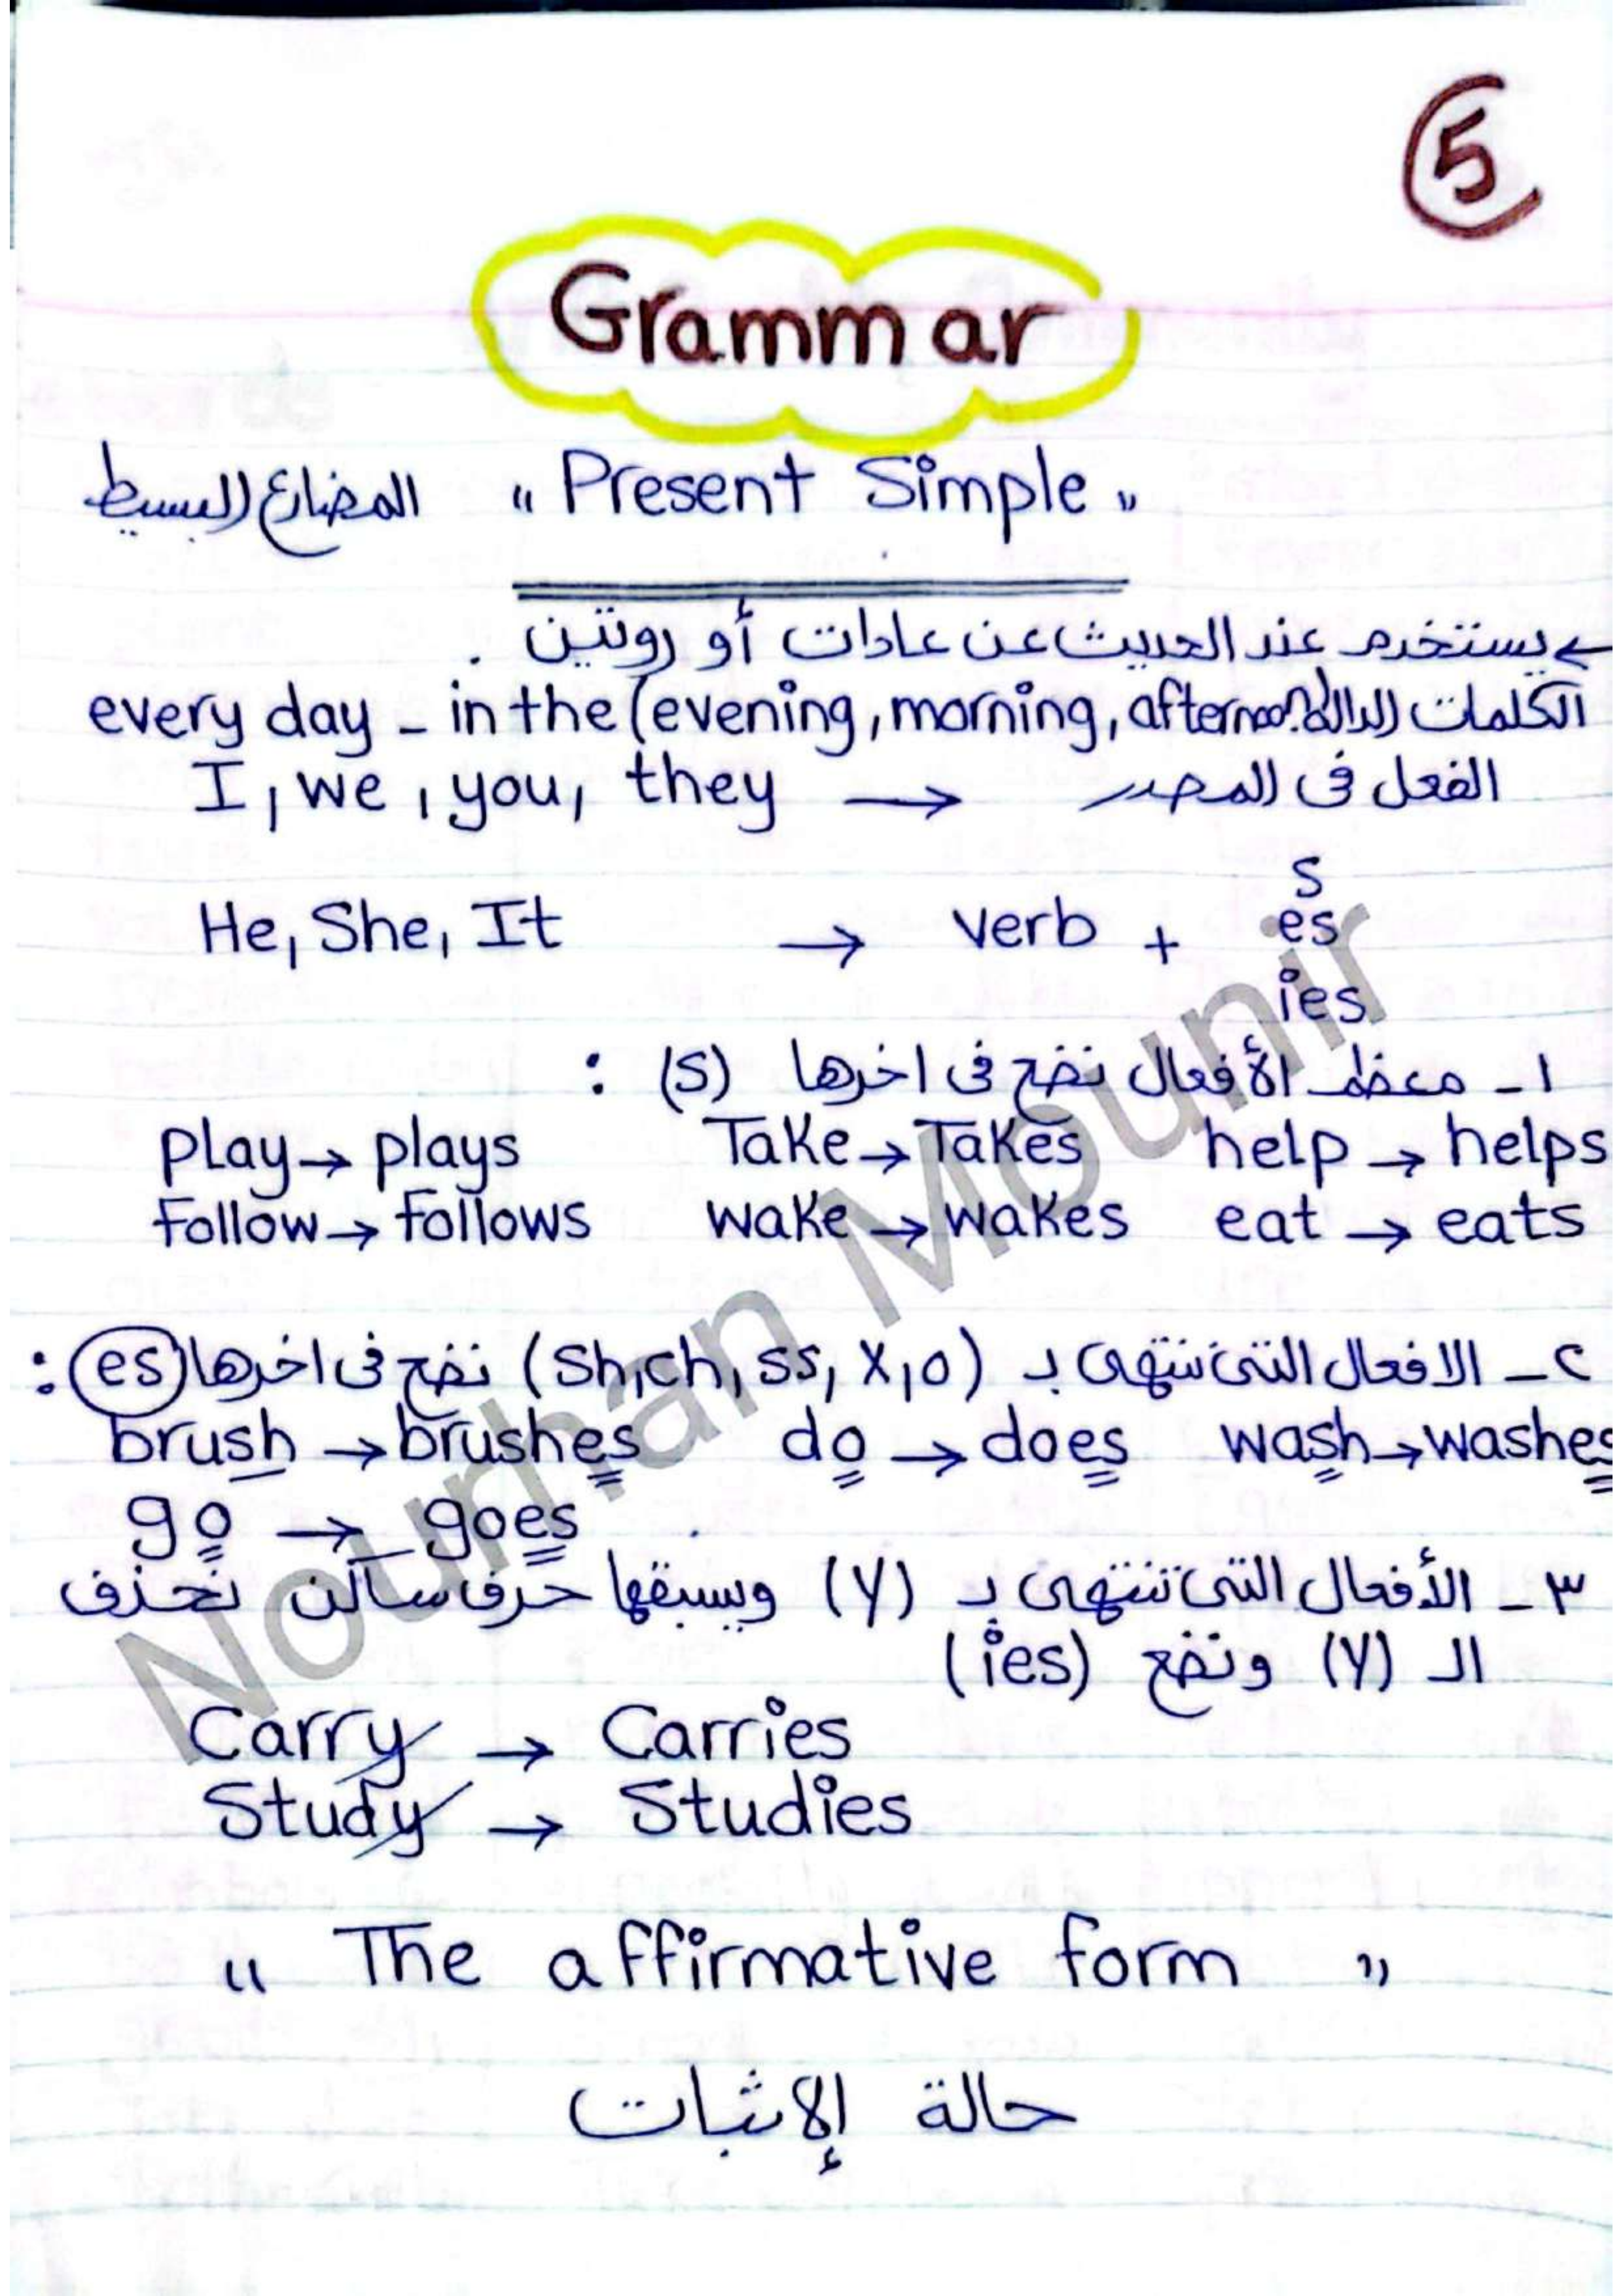 5
Grammar
المضارع البسيط " Present Simple "
يستخدم عند الحديث عن عادات أو روتين .
الكلمات الدالة: every day - in the (evening, morning, afternoon
I, we, you, they → الفعل فى المصدر
s
He, She, It → verb + es
ies
١- معظم الأفعال نضع فى اخرها (s) :
Play → plays Take → Takes help → helps
Follow → follows wake → wakes eat → eats
٢- الافعال التى تنتهى بـ (sh, ch, ss, x, o) نضع فى اخرها (es) :
brush → brushes do → does wash → washes
go → goes
٣- الأفعال التى تنتهى بـ (y) ويسبقها حرف ساكن نحذف
الـ (y) ونضع (ies)
Carry → Carries
Study → Studies
" The affirmative form "
حالة الإثبات
Nourhan Mounir